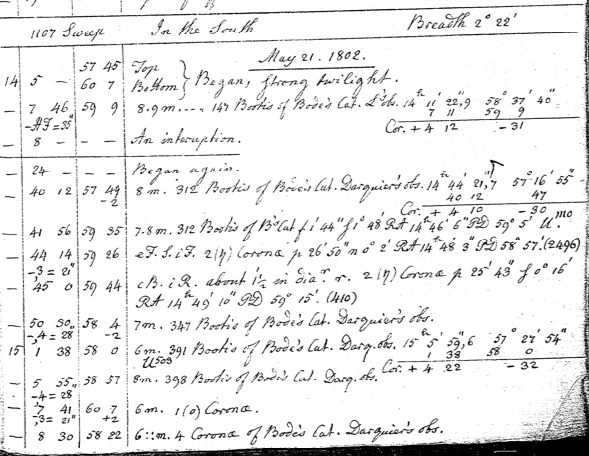 1107 Sweep In the South Breadth 2° 22'
May 21. 1802.
57 45 Top
14 5 – 60 7 Bottom } Began, strong twilight.
– 7 46 59 9 8.9m.... 147 Bootis of Bode's Cat. obs. 14h 11' 22",9 58° 37' 40"
7 11 59 9
– 8 – – – An interuption. Cor. + 4 12 – 31
– 24 – – – Began again.
– 40 12 57 49 8m. 312 Bootis of Bode's Cat. Darquier's obs. 14h 44' 21",7 57° 16' 55"
–2 40 12 47
Cor. + 4 10 – 30
– 41 56 59 35 7.8m. 312 Bootis of B' Cat f 1' 44" f 1° 48' RA 14h 46' 6" PD 59° 5'
– 44 14 59 26 eF. S. iF. 2(η) Coronæ p 26' 50" n 0° 2' RA 14h 48' 3" PD 58° 57'. (2496)
–3 = 21"
– 45 0 59 44 cB. iR. about 1'½ in diar. r. 2(η) Coronæ p 25' 43" f 0° 16'
RA 14h 49' 10" PD 59° 15'. (410)
– 50 30 58 4 7m. 347 Bootis of Bode's Cat. Darquier's obs.
,4 = 28 –2
15 1 38 58 0 6m. 391 Bootis of Bode's Cat. Darq. obs. 15h 5' 59",6 57° 27' 54"
U503 1 38 58 0
– 5 55 58 57 8m. 398 Bootis of Bode's Cat. Darq. obs. Cor. + 4 22 – 32
–4 = 28
– 7 41 60 7 6m. 1(o) Coronæ.
,3 = 21" +2
– 8 30 58 22 6::m. 4 Coronæ of Bode's Cat. Darquier's obs.